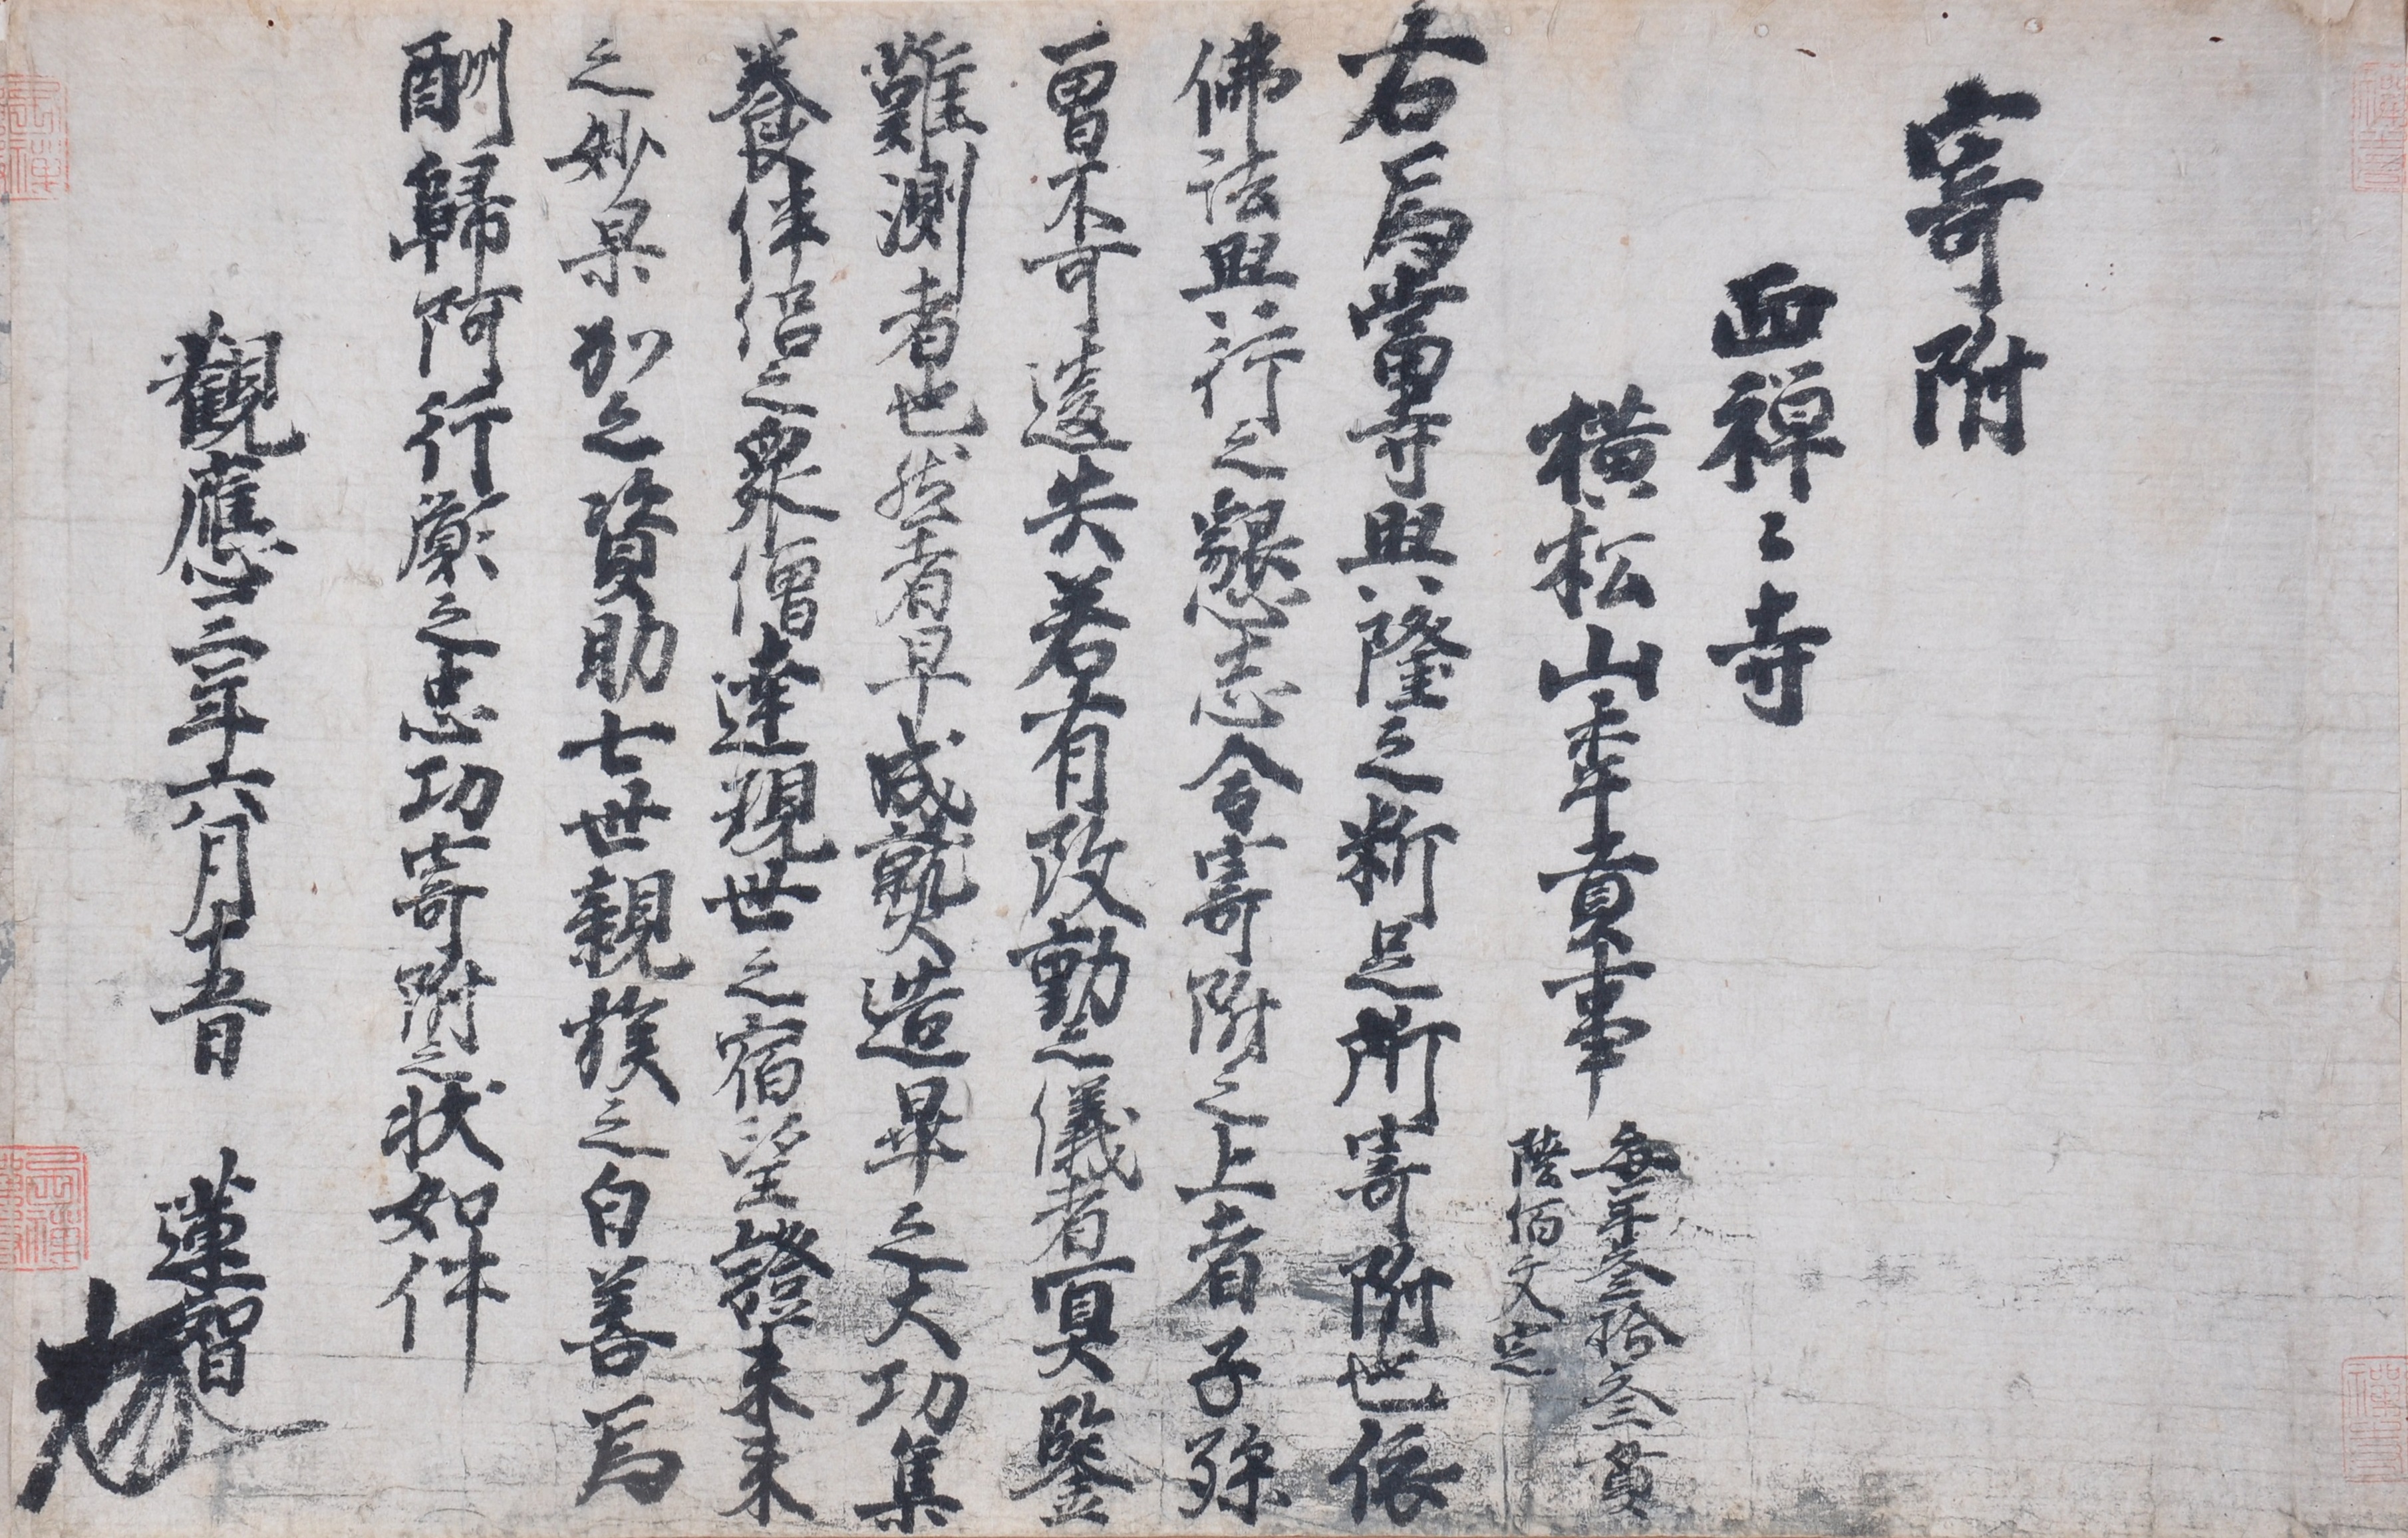 寄附
西禅々寺
横松山本年貢事 毎年参拾参貫
陸佰文定
右為當寺興隆之新足所寄附也依
佛法興行之懇志令寄附之上者子孫
曽不可遺失若有改動之儀者冥鑒
難測者也然者早成熟造畢之大功集
養伴侶之衆僧達現世之宿望證未来
之妙果加之資助七世親族之自善為
酬歸阿行願之忠功寄附之状如件
觀應二年六月十五日 蓮智